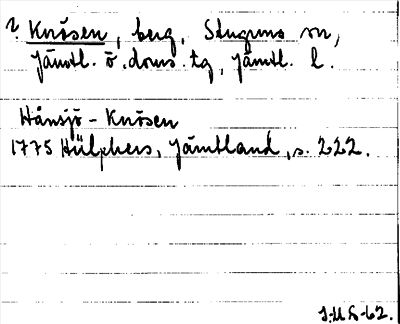 ? Knösen, berg, Stuguns sn,
Jämtl. ö. doms. tg, Jämtl. l.
Hånsjö - Knösen
1775 Hülphers, Jämtland, s. 222.